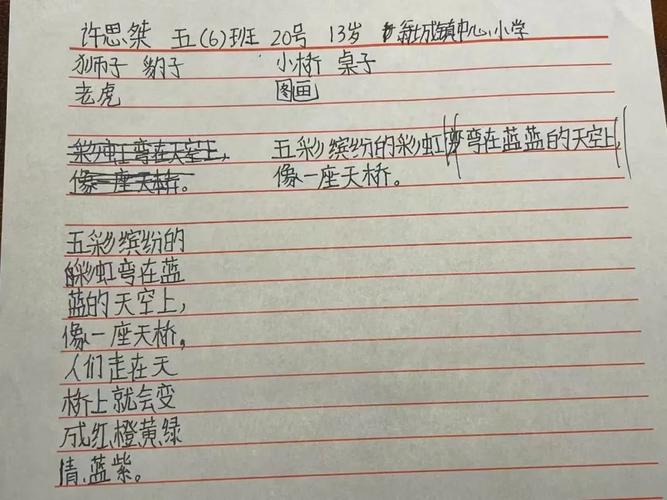 许思桀 五(6)班 20号 13岁 新城镇中心小学
狮子 豹子 小桥 桌子
老虎 图画
彩虹弯在天空上, 五彩缤纷的彩虹弯在蓝蓝的天空上,
像一座天桥。 像一座天桥。
五彩缤纷的
彩虹弯在蓝
蓝的天空上,
像一座天桥。
人们走在天
桥上就会变
成红、橙黄、绿
情、蓝紫。